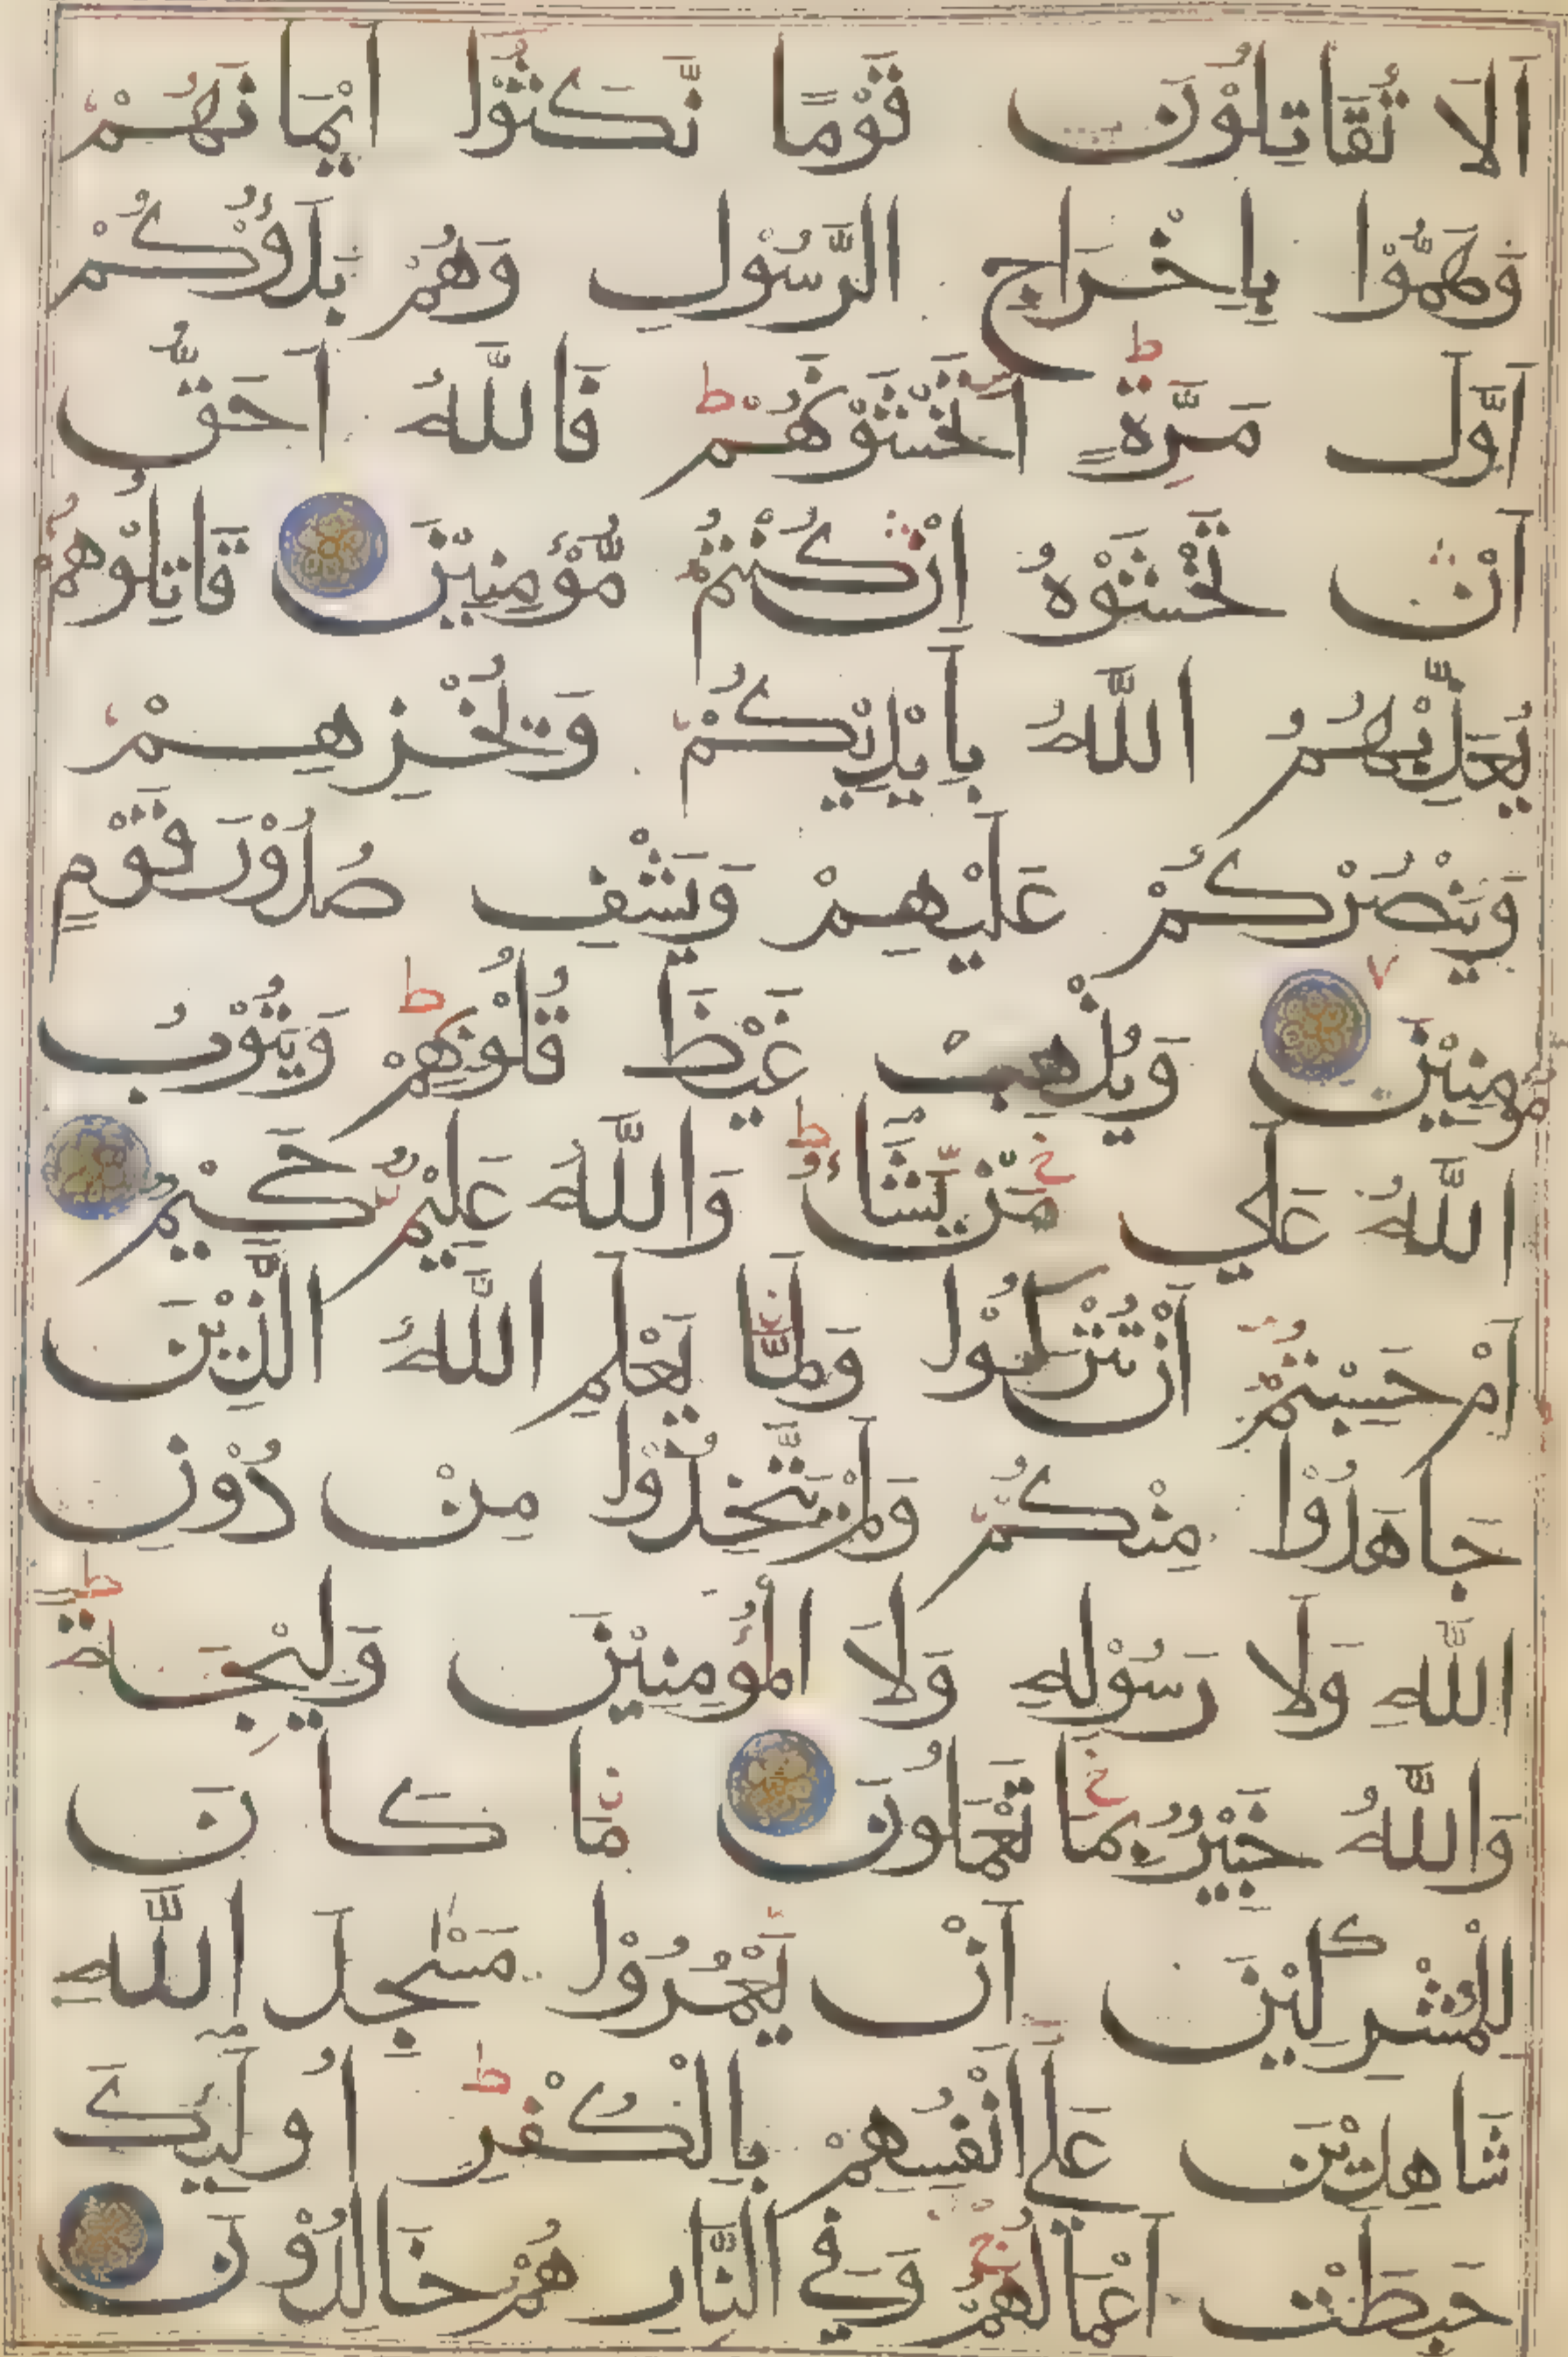 اَلَا تُقَاتِلُوْنَ قَوْمًا نَّكَثُوْٓا اَيْمَانَهُمْ
وَهَمُّوْا بِاِخْرَاجِ الرَّسُوْلِ وَهُمْ بَدَءُوْكُمْ
اَوَّلَ مَرَّةٍ ط اَتَخْشَوْنَهُمْ ط فَاللّٰهُ اَحَقُّ
اَنْ تَخْشَوْهُ اِنْ كُنْتُمْ مُّؤْمِنِيْنَ قَاتِلُوْهُمْ
يُعَذِّبْهُمُ اللّٰهُ بِاَيْدِيْكُمْ وَيُخْزِهِمْ
وَيَنْصُرْكُمْ عَلَيْهِمْ وَيَشْفِ صُدُوْرَ قَوْمٍ
مُّؤْمِنِيْنَ وَيُذْهِبْ غَيْظَ قُلُوْبِهِمْ ط وَيَتُوْبُ
اللّٰهُ عَلٰي مَنْ يَّشَآءُ ط وَاللّٰهُ عَلِيْمٌ حَكِيْمٌ
اَمْ حَسِبْتُمْ اَنْ تُتْرَكُوْا وَلَمَّا يَعْلَمِ اللّٰهُ الَّذِيْنَ
جَاهَدُوْا مِنْكُمْ وَلَمْ يَتَّخِذُوْا مِنْ دُوْنِ
اللّٰهِ وَلَا رَسُوْلِهِ وَلَا الْمُؤْمِنِيْنَ وَلِيْجَةً ط
وَاللّٰهُ خَبِيْرٌ بِمَا تَعْمَلُوْنَ مَا كَانَ
لِلْمُشْرِكِيْنَ اَنْ يَّعْمُرُوْا مَسٰجِدَ اللّٰهِ
شَاهِدِيْنَ عَلٰي اَنْفُسِهِمْ بِالْكُفْرِ ط اُولٰٓئِكَ
حَبِطَتْ اَعْمَالُهُمْ وَفِي النَّارِ هُمْ خَالِدُوْنَ